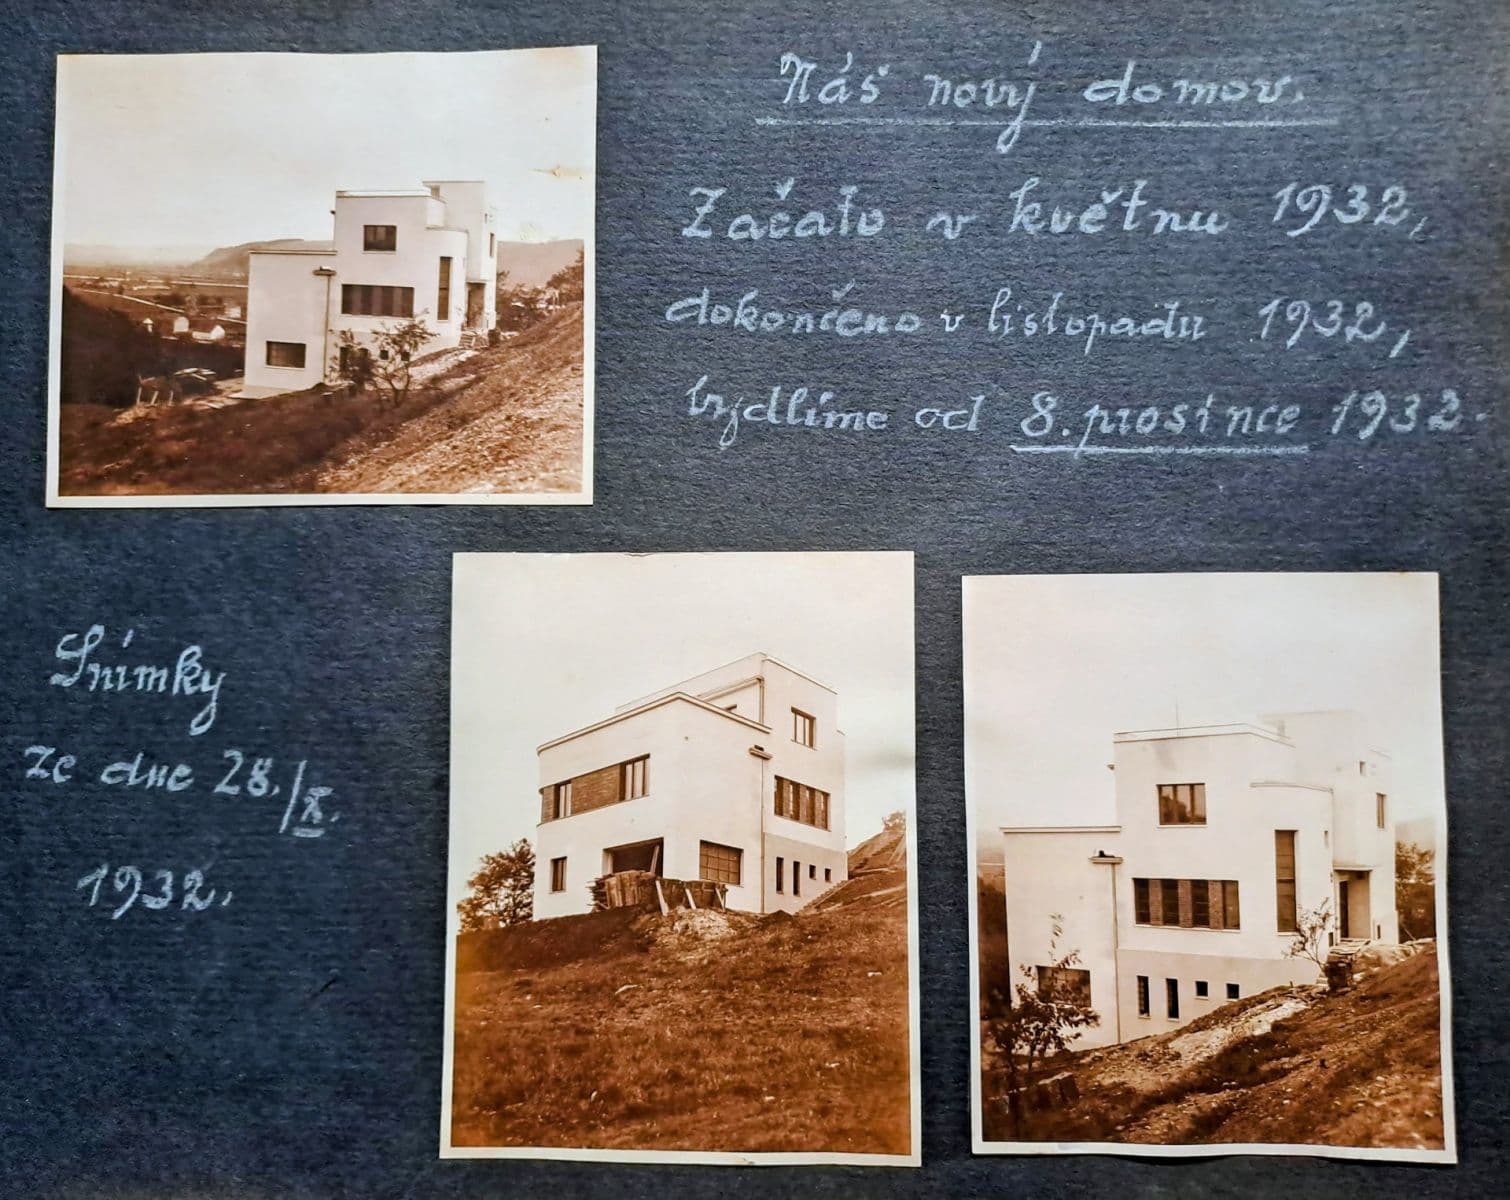 Náš nový domov.
Začato v květnu 1932,
dokončeno v listopadu 1932,
bydlíme od 8. prosince 1932.
Snímky
ze dne 28./X.
1932.